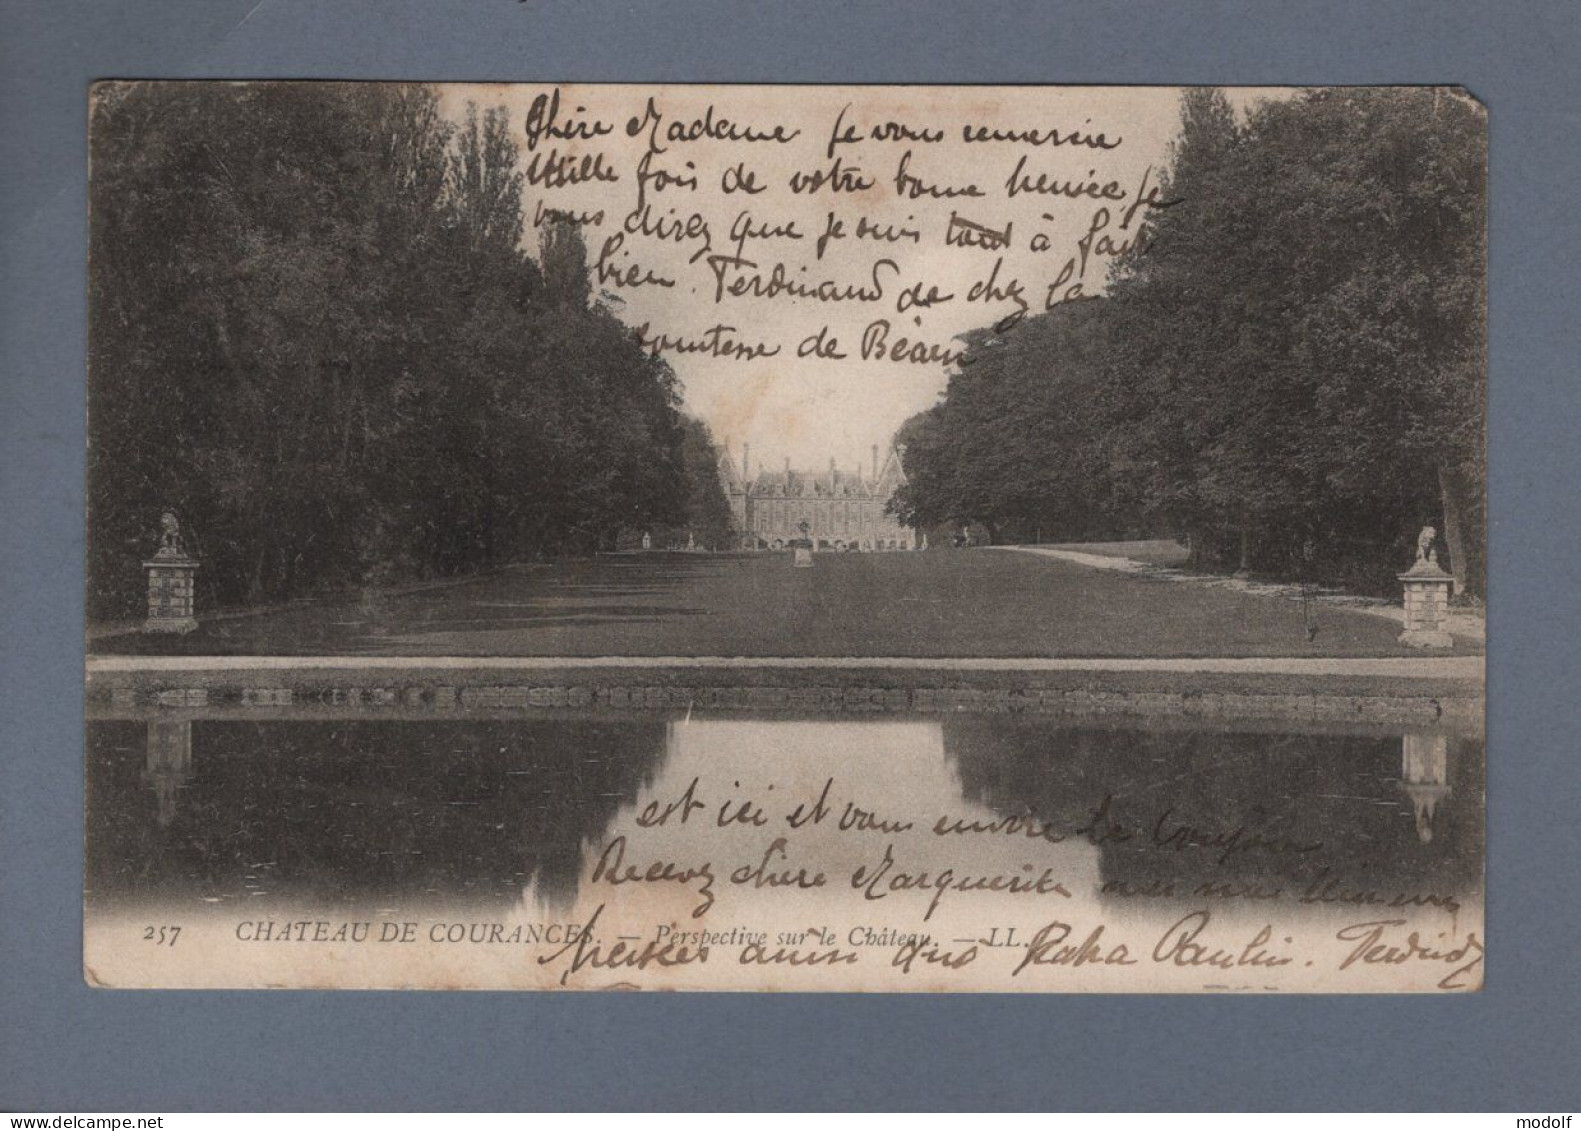 Chère Madame Je vous remercie
Mille fois de votre bonne pensée Je
vous direz que je suis tout à fait
bien. Ferdinand de chez la
Comtesse de Béarn
est ici et vous envoie le bonjour
Recevez chère Marguerite mes
pensées ainsi que Paulin. Ferdind
257 CHATEAU DE COURANCES. — Perspective sur le Château. — LL.
modolf